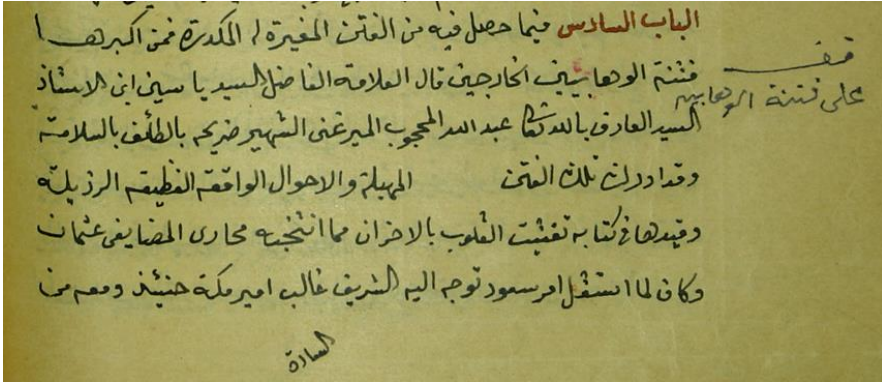 الباب السادس فيما حصل فيه من الفتن المغيرة له المكدرة فمن اكبرها
فتنة الوهابيين الخارجين قال العلامة الفاضل السيد ياسين ابن الاستاذ
السيد العارف بالله تعالى عبد الله المحجوب الميرغنى الشهير ضريحه بالطائف بالسلامة
وقد ادرك تلك الفتن المهيلة والاحوال الواقعة الفظيعة الرزيلة
وقيدها فى كتابه تفتيت القلوب بالاحزان مما انتجته مجارى المضايفى عثمان
وكان لما استقل امر سعود توجه اليه الشريف غالب امير مكة حنيئذ ومعه من
السادة
قف
على فتنة الوهابيين